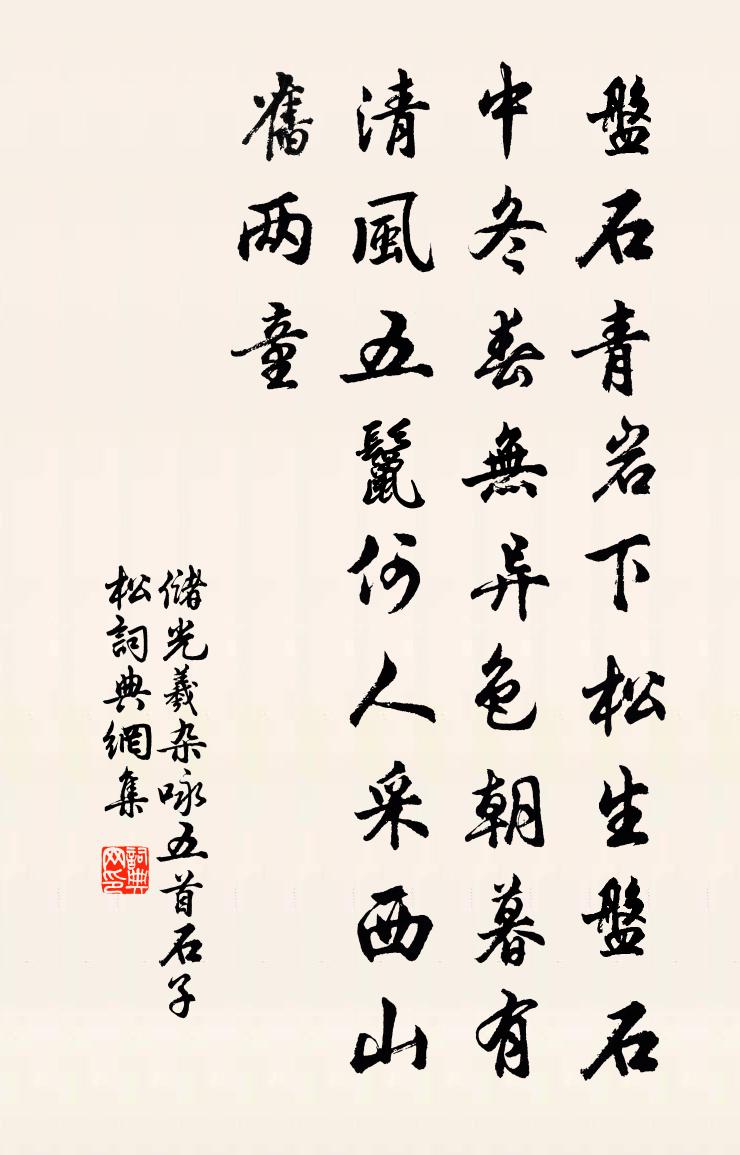 盤石青岩下松生盤石
中冬春無异色朝暮有
清風五鬣何人采西山
舊两童
儲光羲杂咏五首石子
松詞典網集
詞典网印